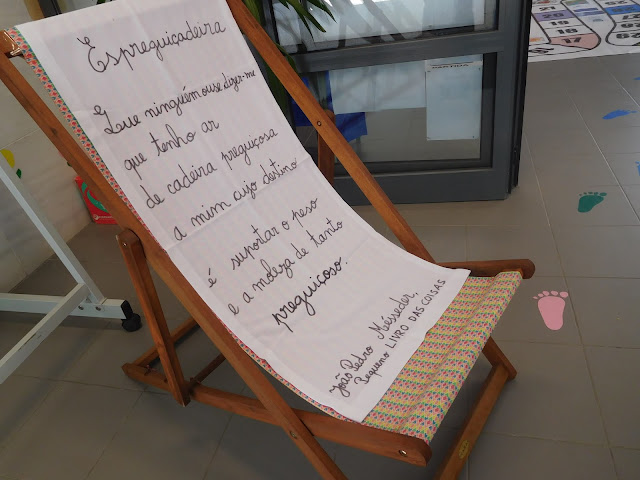 Espreguiçadeira
Que ninguém ouse dizer-me
que tenho ar
de cadeira preguiçosa
a mim cujo destino
é suportar o peso
e a moleza de tanto
preguiçoso.
João Pedro Mésseder,
Pequeno LIVRO DAS COISAS